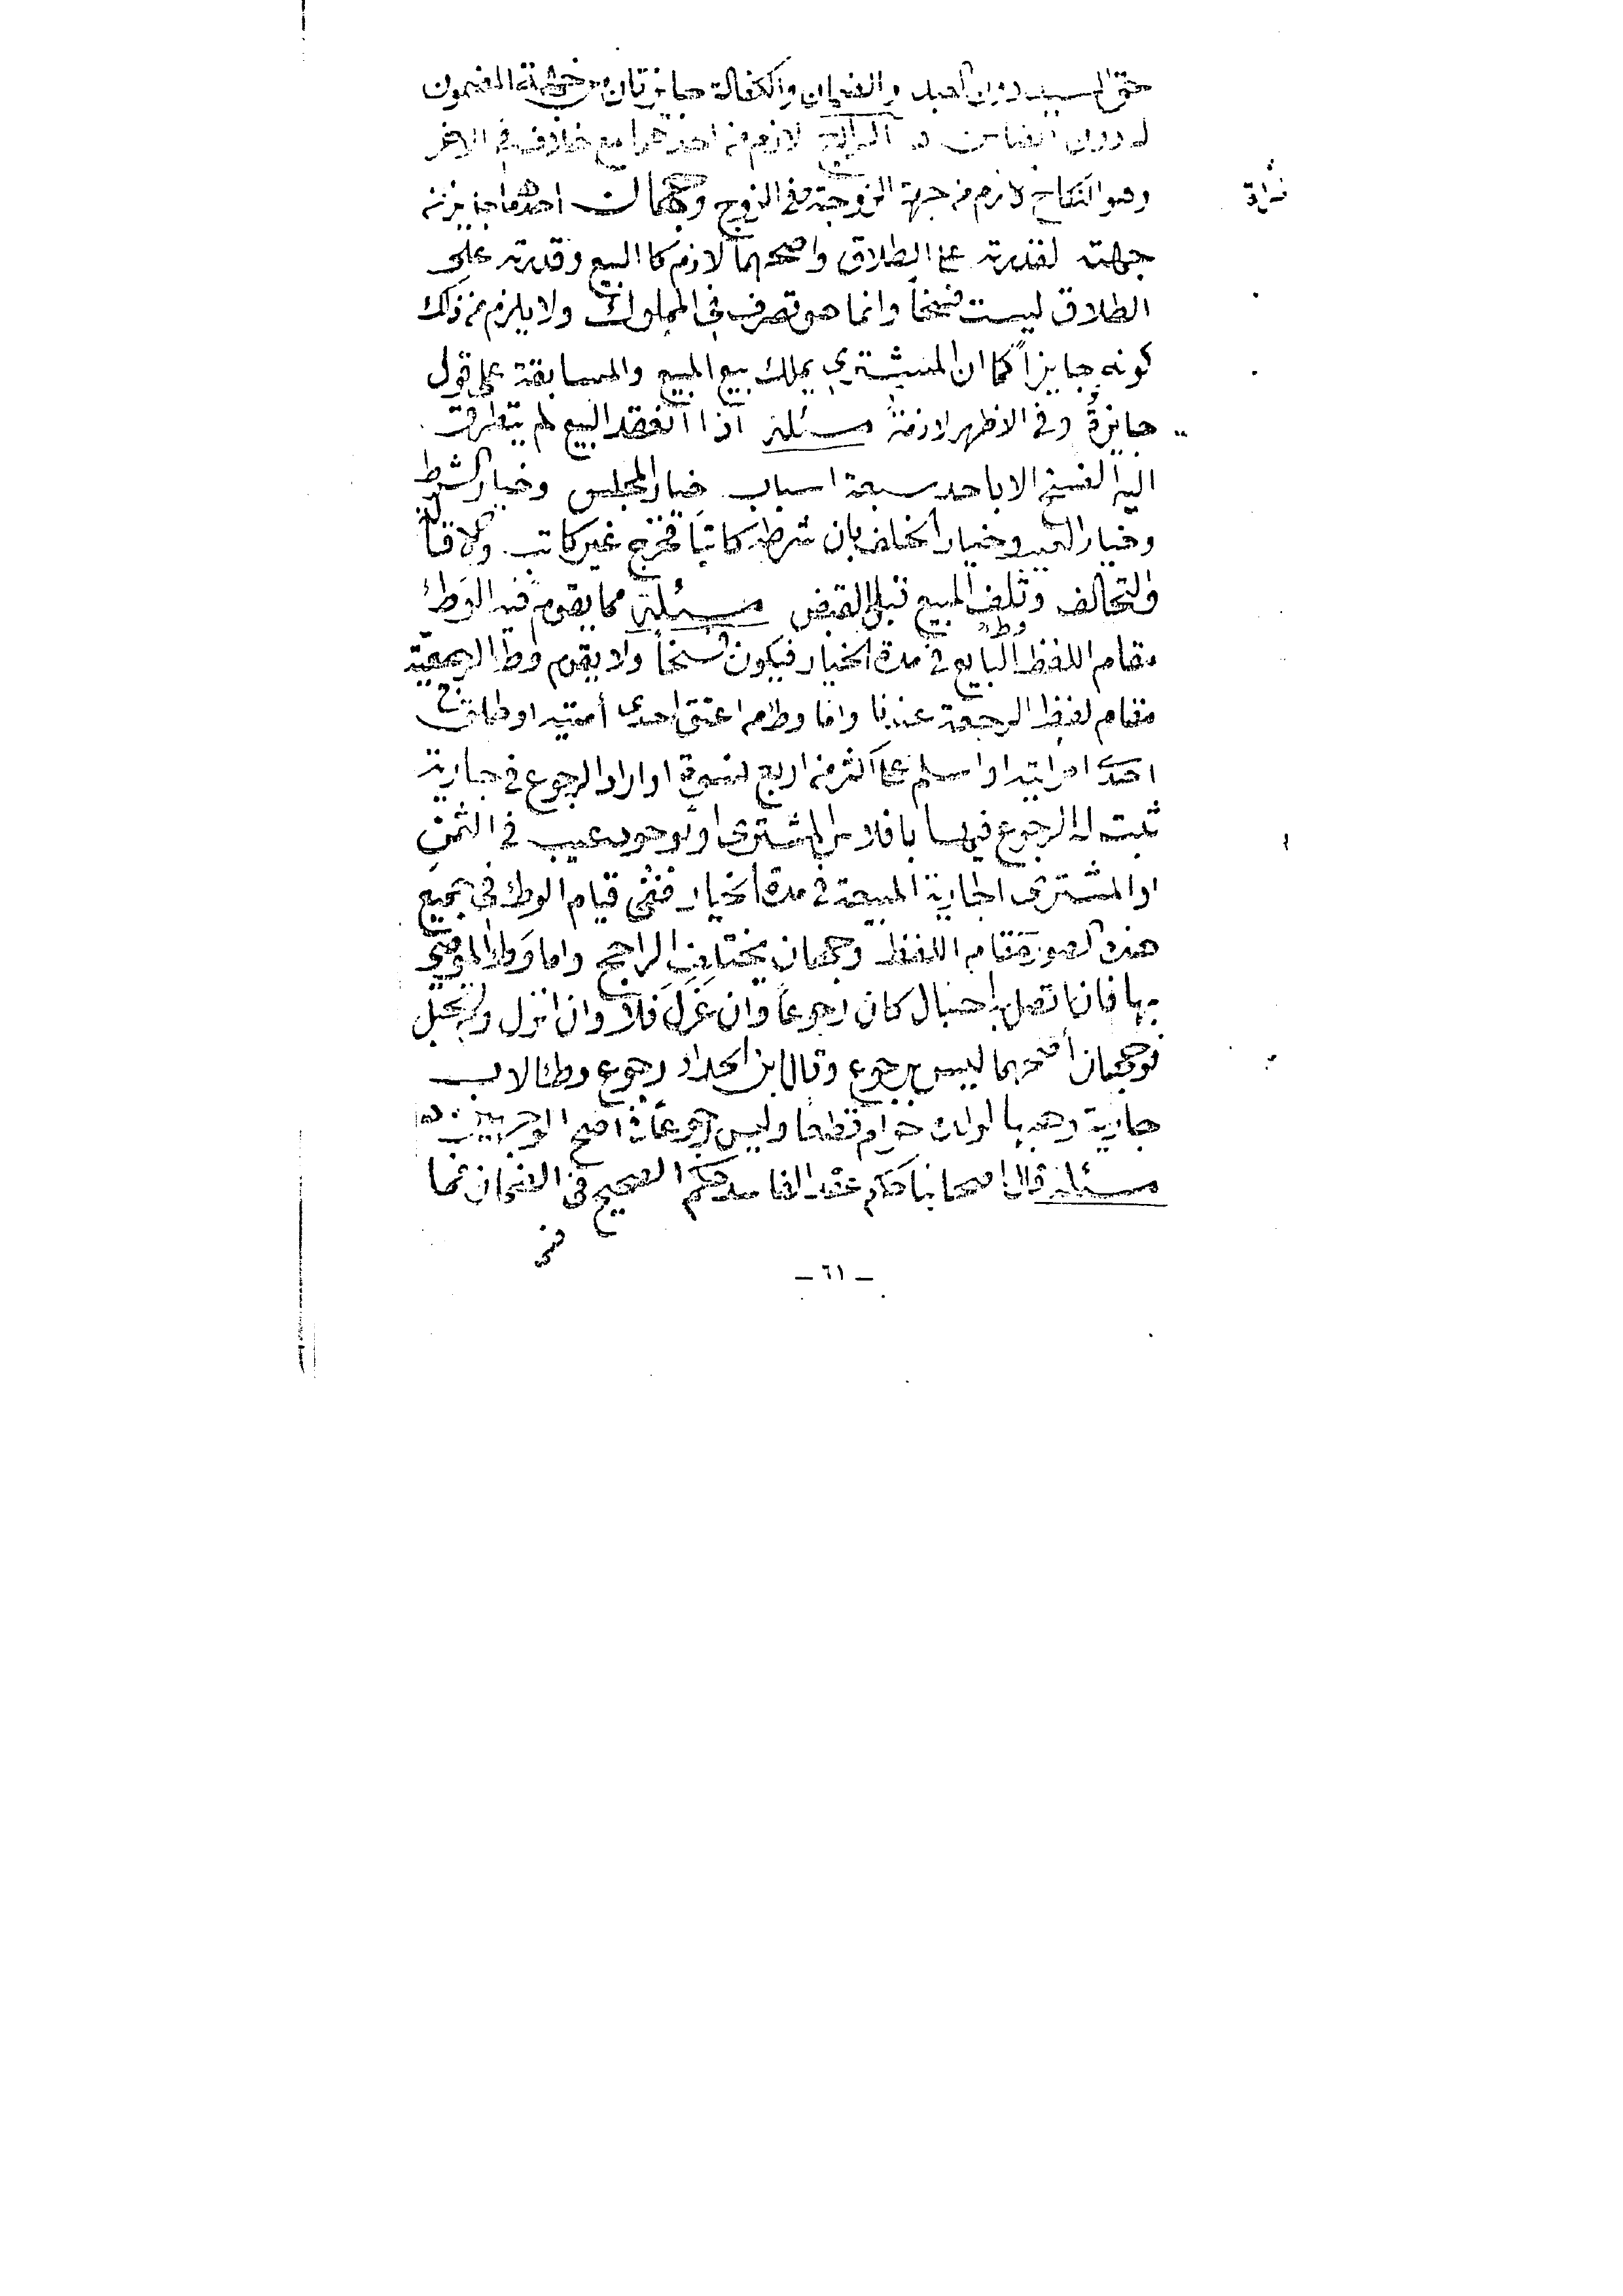 حق السيد دون العبد والضمان والكفالة جايزتان من جهة المضمون
له دون الضامن الرابع لازم من احدهما مع خلاف في الاخر
وهو النكاح لازم من جهة الزوجة وفي الزوج وجهان احدهما جايز من
جهته لقدرته على الطلاق واصحهما لازم كالبيع وقدرته على
الطلاق ليست فسخاً وانما هو تصرف في المملوك ولا يلزم من ذلك
كونه جايزاً كما ان المشتري يملك بيع المبيع والمسابقة على قول
جايزة وفي الاظهر لازمة مسئلة اذا انعقد البيع لم يتطرق
اليه الفسخ الا باحد سبعة اسباب خيار المجلس وخيار الشرط
وخيار العيب وخيار الخلف بان شرطه كاتباً فخرج غير كاتب والاقالة
والتحالف وتلف المبيع قبل القبض مسئلة مما يقوم فيه الوطئ
مقام اللفظ وطء البايع في مدة الخيار فيكون فسخاً ولا يقوم وطء الرجعية
مقام لفظ الرجعة عندنا واما وطء من اعتق احدى أمتيه او طلق
احدى امراتيه او اسلم على اكثر من اربع نسوة او اراد الرجوع في جارية
ثبت له الرجوع فيها بافلاس المشتري او بوجود عيب في الثمن
او المشتري الجارية المبيعة في مدة الخيار ففي قيام الوطء في جميع
هذه الصور مقام اللفظ وجهان يختلف الراجح واما وطء الموصي
بها فان اتصل باحبال كان رجوعاً وان عزل فلا وان انزل ولم تحبل
فوجهان أصحهما ليس برجوع وقال ابن الحداد رجوع وطء الاب
جارية وهبها لولده حرام قطعاً وليس رجوعاً في اصح الوجهين
مسئلة قال اصحابنا حكم عقد الفاسد حكم الصحيح في الضمان فما
- ٦١ -